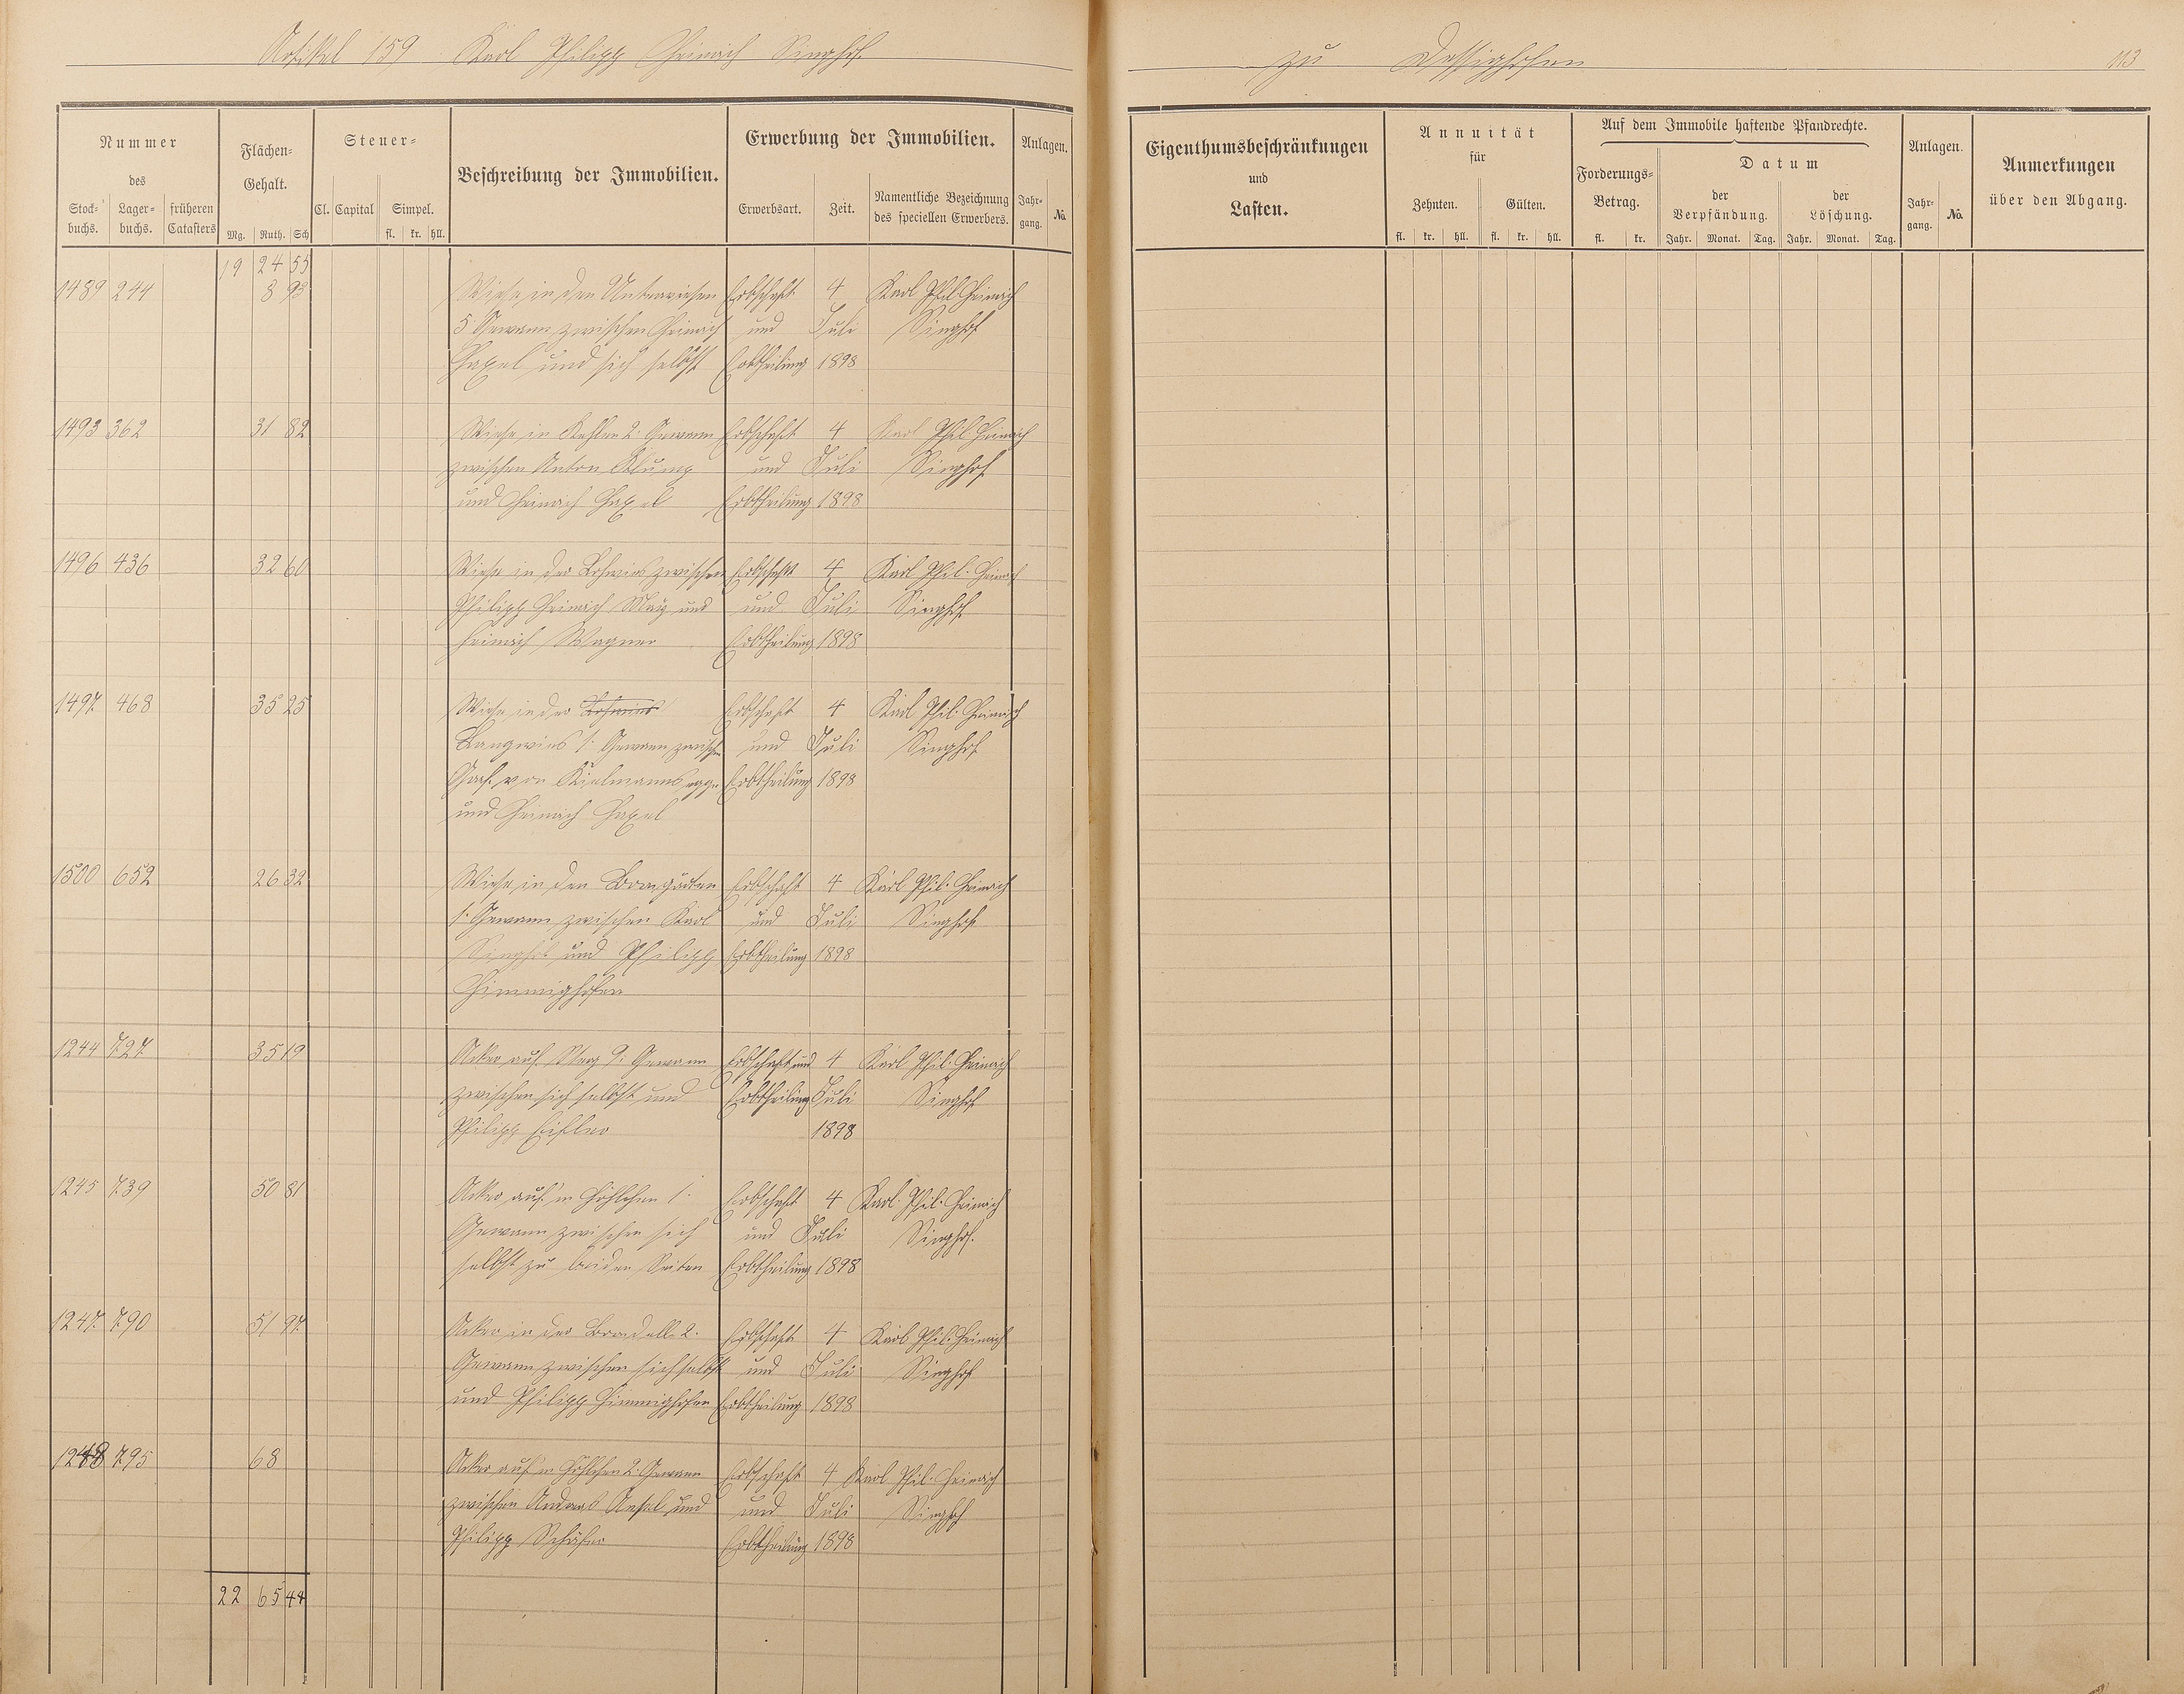 Artikel 159 Karl Philipp Heinrich Singhof
zu Dessighofen
113
Nummer
des
Stock-
buchs.
Lager-
buchs.
früheren
Catasters
Flächen-
Gehalt.
Mg. Ruth. Sch
Steuer-
Cl. Capital Simpel.
fl. kr. hll.
Beschreibung der Immobilien.
Erwerbung der Immobilien.
Erwerbsart. Zeit.
Namentliche Bezeichnung
des speciellen Erwerbers.
Anlagen.
Jahr-
gang.
No.
Eigenthumsbeschränkungen
und
Lasten.
Annuität
für
Zehnten. Gülten.
fl. kr. hll. fl. kr. hll.
Auf dem Immobile haftende Pfandrechte.
Forderungs-
Betrag.
fl. kr.
Datum
der
Verpfändung.
der
Löschung.
Jahr. Monat. Tag. Jahr. Monat. Tag.
Anlagen.
Jahr-
gang.
No.
Anmerkungen
über den Abgang.
19 24 55
1489 244 8 93 Wiese in den Unterwiesen Erbschaft 4 Karl Phil Heinrich
5 Gewann zwischen Heinrich und Juli Singhof
Haxel und sich selbst Erbtheilung 1898
1493 362 31 82 Wiese in Kehlen 2. Gewann Erbschaft 4 Karl Phil Heinrich
zwischen Anton Klump und Juli Singhof
und Heinrich Haxel Erbtheilung 1898
1496 436 32 60 Wiese in der Lohwies zwischen Erbschaft 4 Karl Phil. Heinrich
Philipp Heinrich May und und Juli Singhof
Heinrich Wagner Erbtheilung 1898
1497 468 35 25 Wiese in der Lohwies Erbschaft 4 Karl Phil. Heinrich
Langwies 1. Gewann zwischen und Juli Singhof
Graf von Kielmannsegge Erbtheilung 1898
und Heinrich Haxel
1500 652 26 32 Wiese in den Bomgärten Erbschaft 4 Karl Phil. Heinrich
1. Gewann zwischen Karl und Juli Singhof
Singhof und Philipp Erbtheilung 1898
Himmighofen
1244 727 35 19 Acker auf 9. Gewann Erbschaft und 4 Karl Phil. Heinrich
zwischen sich selbst und Erbtheilung Juli Singhof
Philipp 1898
1245 739 50 81 Acker auf'm Höhlchen 1. Erbschaft 4 Karl Phil. Heinrich
Gewann zwischen sich und Juli Singhof.
selbst zu beiden Seiten Erbtheilung 1898
1247 790 51 97 Acker in der 2. Erbschaft 4 Karl Phil. Heinrich
Gewann zwischen sich selbst und Juli Singhof
und Philipp Himmighofen Erbtheilung 1898
1248 795 68 Acker auf'm Höhlchen 2. Gewann Erbschaft 4 Karl Phil. Heinrich
zwischen Andreas und und Juli Singhof
Philipp Schäfer Erbtheilung 1898
22 65 44